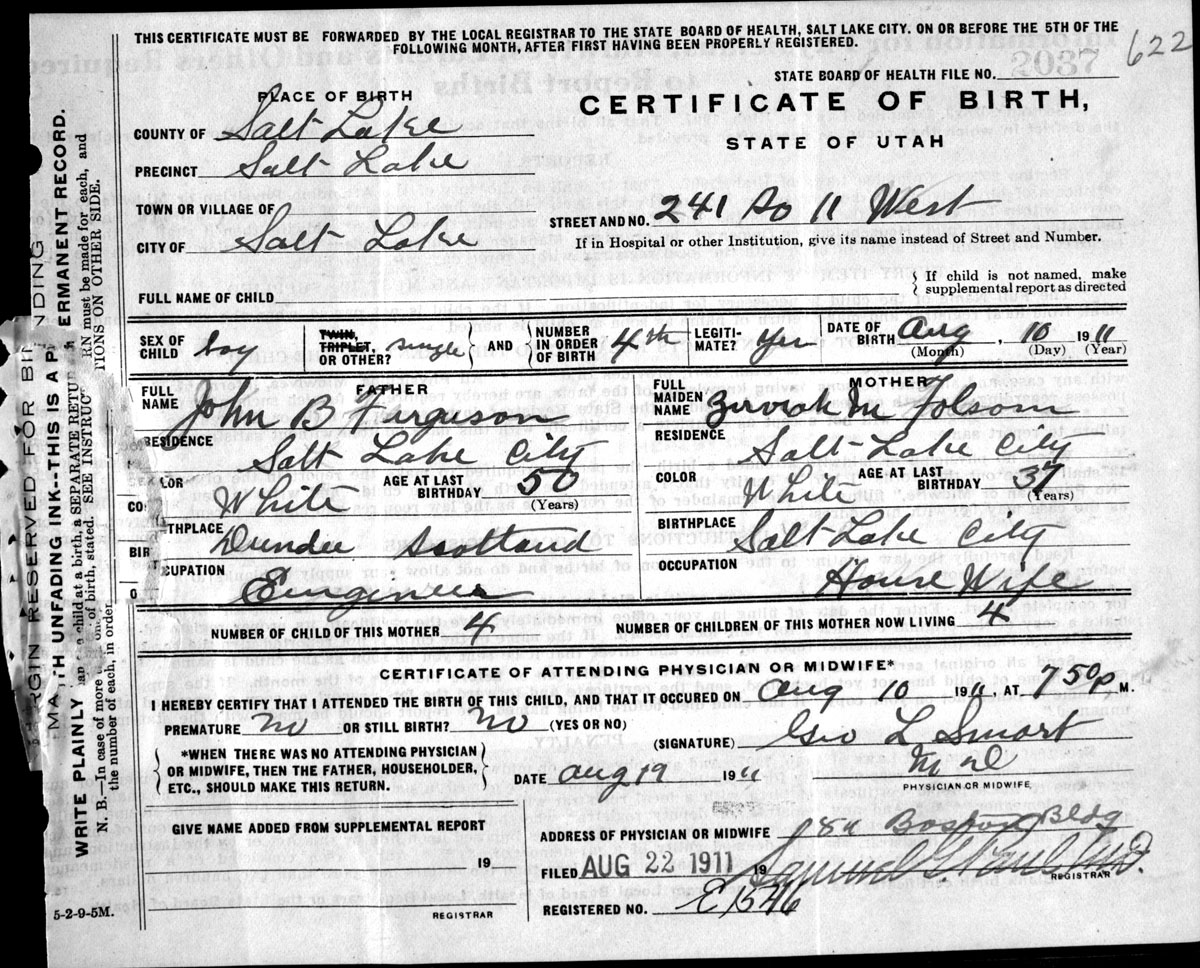 THIS CERTIFICATE MUST BE FORWARDED BY THE LOCAL REGISTRAR TO THE STATE BOARD OF HEALTH, SALT LAKE CITY. ON OR BEFORE THE 5TH OF THE
FOLLOWING MONTH, AFTER FIRST HAVING BEEN PROPERLY REGISTERED.
622
STATE BOARD OF HEALTH FILE NO. 2037
PLACE OF BIRTH
CERTIFICATE OF BIRTH,
COUNTY OF Salt Lake
STATE OF UTAH
PRECINCT Salt Lake
TOWN OR VILLAGE OF
STREET AND NO. 241 So 11 West
CITY OF Salt Lake
If in Hospital or other Institution, give its name instead of Street and Number.
FULL NAME OF CHILD
If child is not named, make
supplemental report as directed
SEX OF CHILD boy
TWIN, TRIPLET, OR OTHER? single
AND NUMBER IN ORDER OF BIRTH 4th
LEGITI-MATE? Yes
DATE OF BIRTH Aug 10 1911
(Month) (Day) (Year)
FATHER
FULL NAME John B Ferguson
RESIDENCE
Salt Lake City
LOR White AGE AT LAST BIRTHDAY 50 (Years)
THPLACE
Dundee Scotland
CUPATION
Engineer
MOTHER
FULL MAIDEN NAME Zerviah M Folsom
RESIDENCE
Salt Lake City
COLOR White AGE AT LAST BIRTHDAY 37 (Years)
BIRTHPLACE
Salt Lake City
OCCUPATION House Wife
NUMBER OF CHILD OF THIS MOTHER 4 NUMBER OF CHILDREN OF THIS MOTHER NOW LIVING 4
CERTIFICATE OF ATTENDING PHYSICIAN OR MIDWIFE*
I HEREBY CERTIFY THAT I ATTENDED THE BIRTH OF THIS CHILD, AND THAT IT OCCURED ON Aug 10 1911, AT 150 P, M.
PREMATURE No OR STILL BIRTH? No (YES OR NO)
(SIGNATURE) Geo L Smart
M D
PHYSICIAN OR MIDWIFE,
*WHEN THERE WAS NO ATTENDING PHYSICIAN
OR MIDWIFE, THEN THE FATHER, HOUSEHOLDER,
ETC., SHOULD MAKE THIS RETURN.
DATE Aug 19 1911
GIVE NAME ADDED FROM SUPPLEMENTAL REPORT
19
REGISTRAR
5-2-9-5M.
ADDRESS OF PHYSICIAN OR MIDWIFE Boston Bldg
FILED AUG 22 1911 19 Samuel G. Paul M.D.
REGISTRAR
REGISTERED NO. E 1546
RGIN RESERVED FOR BI NDING
WRITE PLAINLY TH UNFADING INK--THIS IS A P ERMANENT RECORD.
N. B.—In case of more child at a birth, a SEPARATE RETU RN must be made for each, and
the number of each, in order of birth, stated. SEE INSTRUC TIONS ON OTHER SIDE.